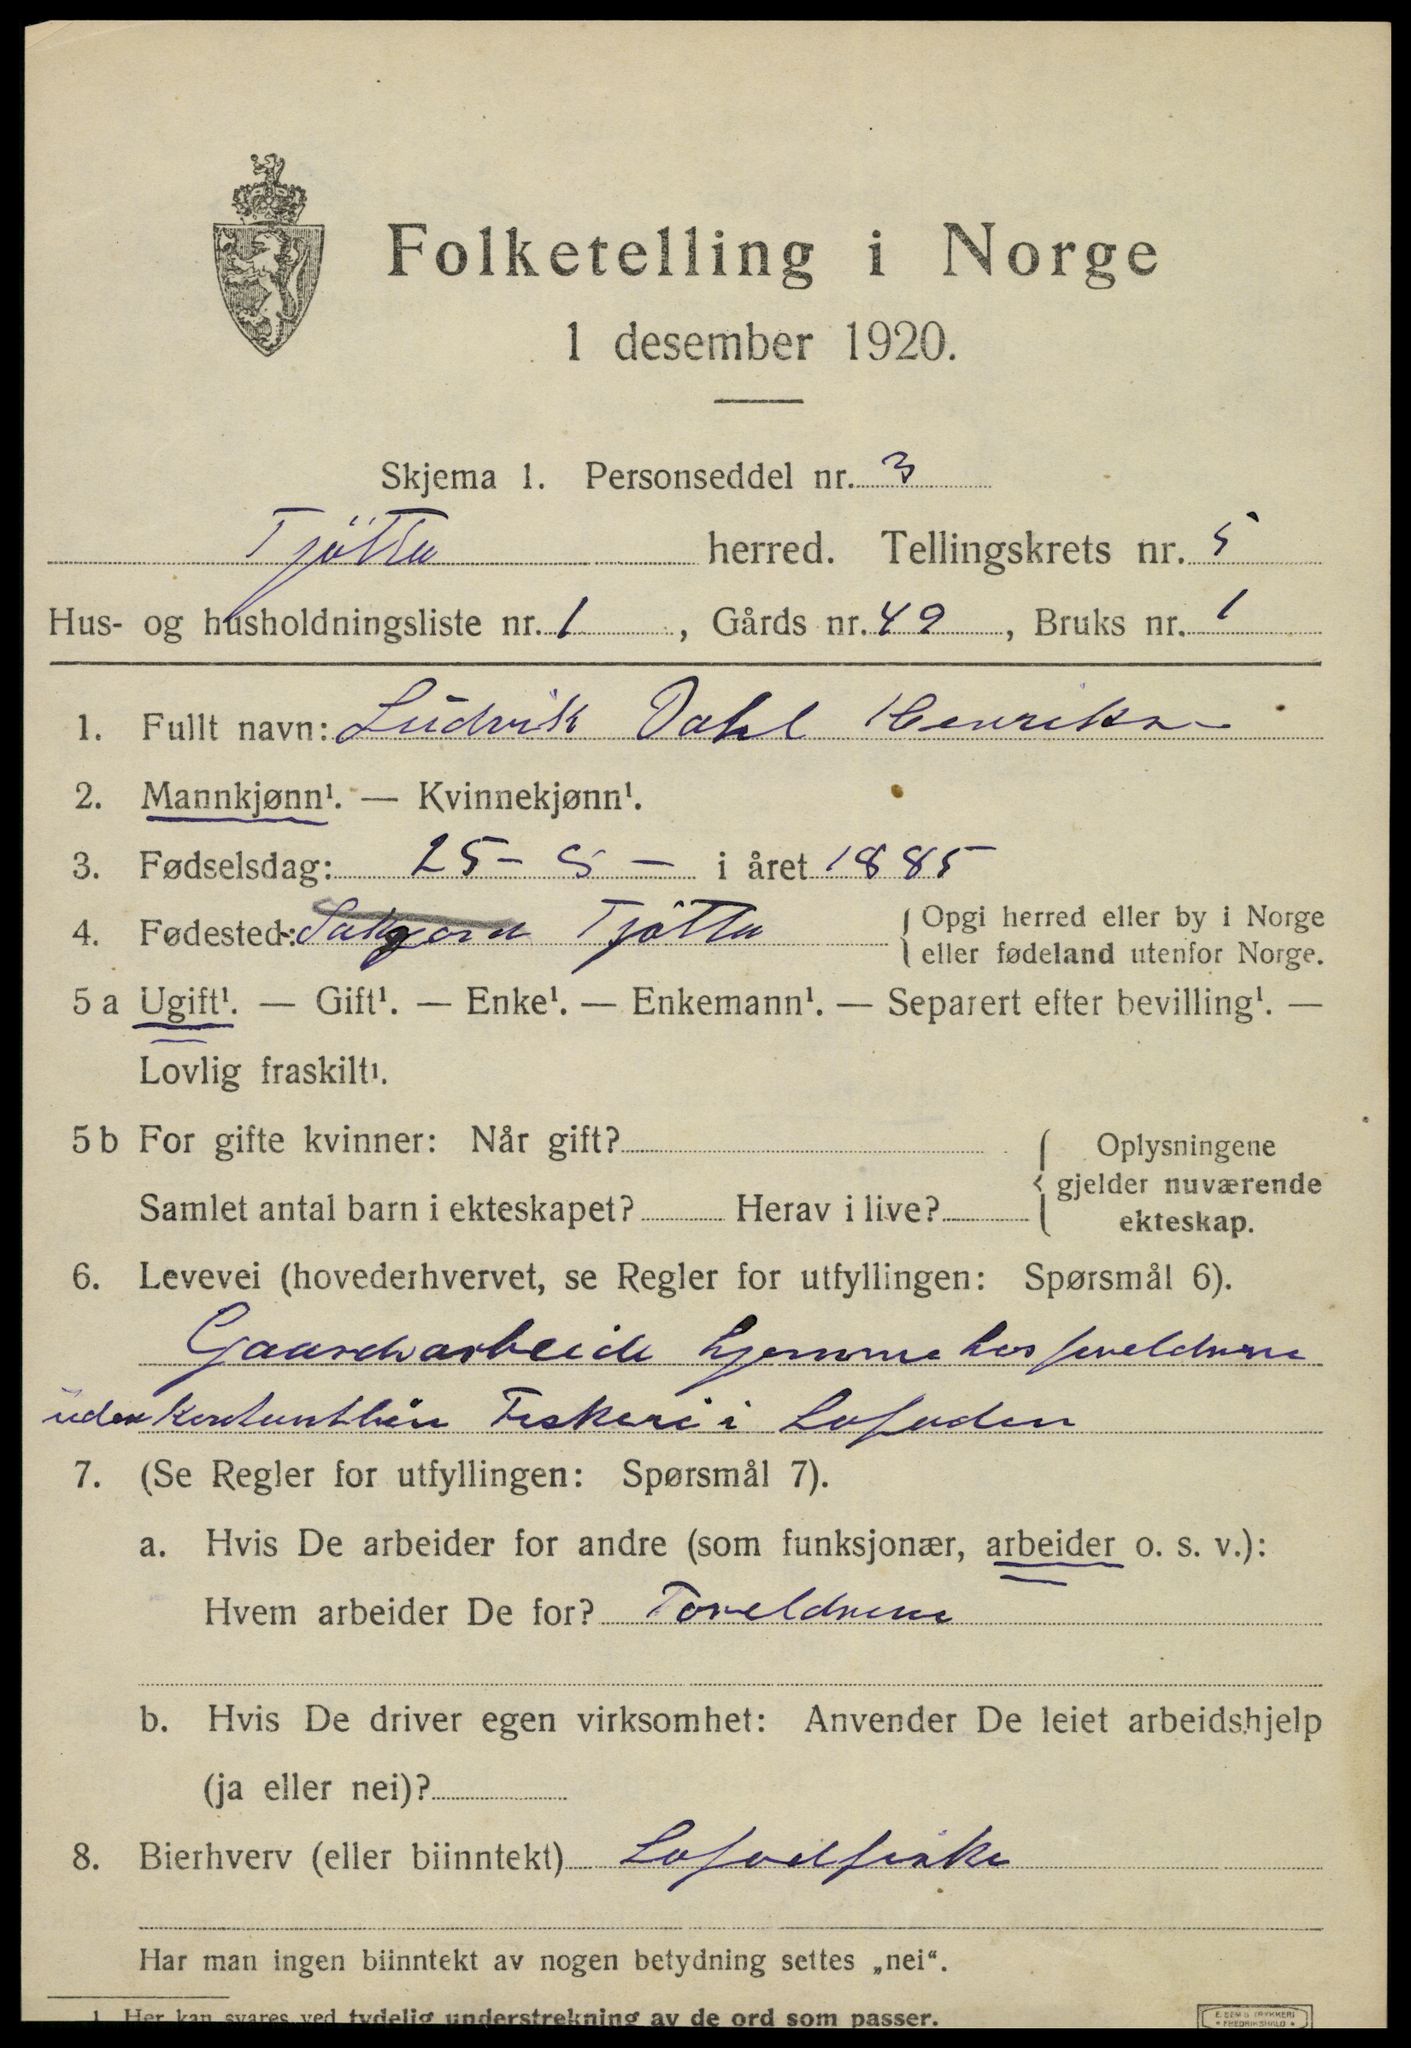 Folketelling i Norge
1 desember 1920.
Skjema 1. Personseddel nr. 3
Tjøtta herred. Tellingskrets nr. 5
Hus- og husholdningsliste nr. 1, Gårds nr. 49, Bruks nr. 1
1. Fullt navn: Ludvik Dahl Henriks
2. Mannkjønn¹. — Kvinnekjønn¹.
3. Fødselsdag: 25 - 5 - i året 1885
4. Fødested: Tjøtta { Opgi herred eller by i Norge
eller fødeland utenfor Norge.
5 a Ugift¹. — Gift¹. — Enke¹. — Enkemann¹. — Separert efter bevilling¹. —
Lovlig fraskilt¹.
5 b For gifte kvinner: Når gift? { Oplysningene
gjelder nuværende
Samlet antal barn i ekteskapet? Herav i live? ekteskap.
6. Levevei (hovederhvervet, se Regler for utfyllingen: Spørsmål 6).
Gaardsarbeide hjemme hos foreldrene
uden kontantløn Fiskeri i Lofoden
7. (Se Regler for utfyllingen: Spørsmål 7).
a. Hvis De arbeider for andre (som funksjonær, arbeider o. s. v.):
Hvem arbeider De for? Foreldrene
b. Hvis De driver egen virksomhet: Anvender De leiet arbeidshjelp
(ja eller nei)?
8. Bierhverv (eller biinntekt) Lofodfiske
Har man ingen biinntekt av nogen betydning settes „nei“.
1 Her kan svares ved tydelig understrekning av de ord som passer.